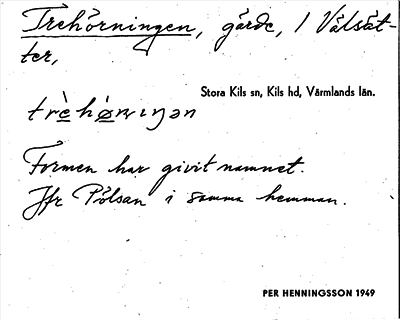 Trehörningen, gärde, 1 Vålsät-
ter,
Stora Kils sn, Kils hd, Värmlands län.
Formen har givit namnet.
Jfr Pölsan i samma hemman.
PER HENNINGSSON 1949